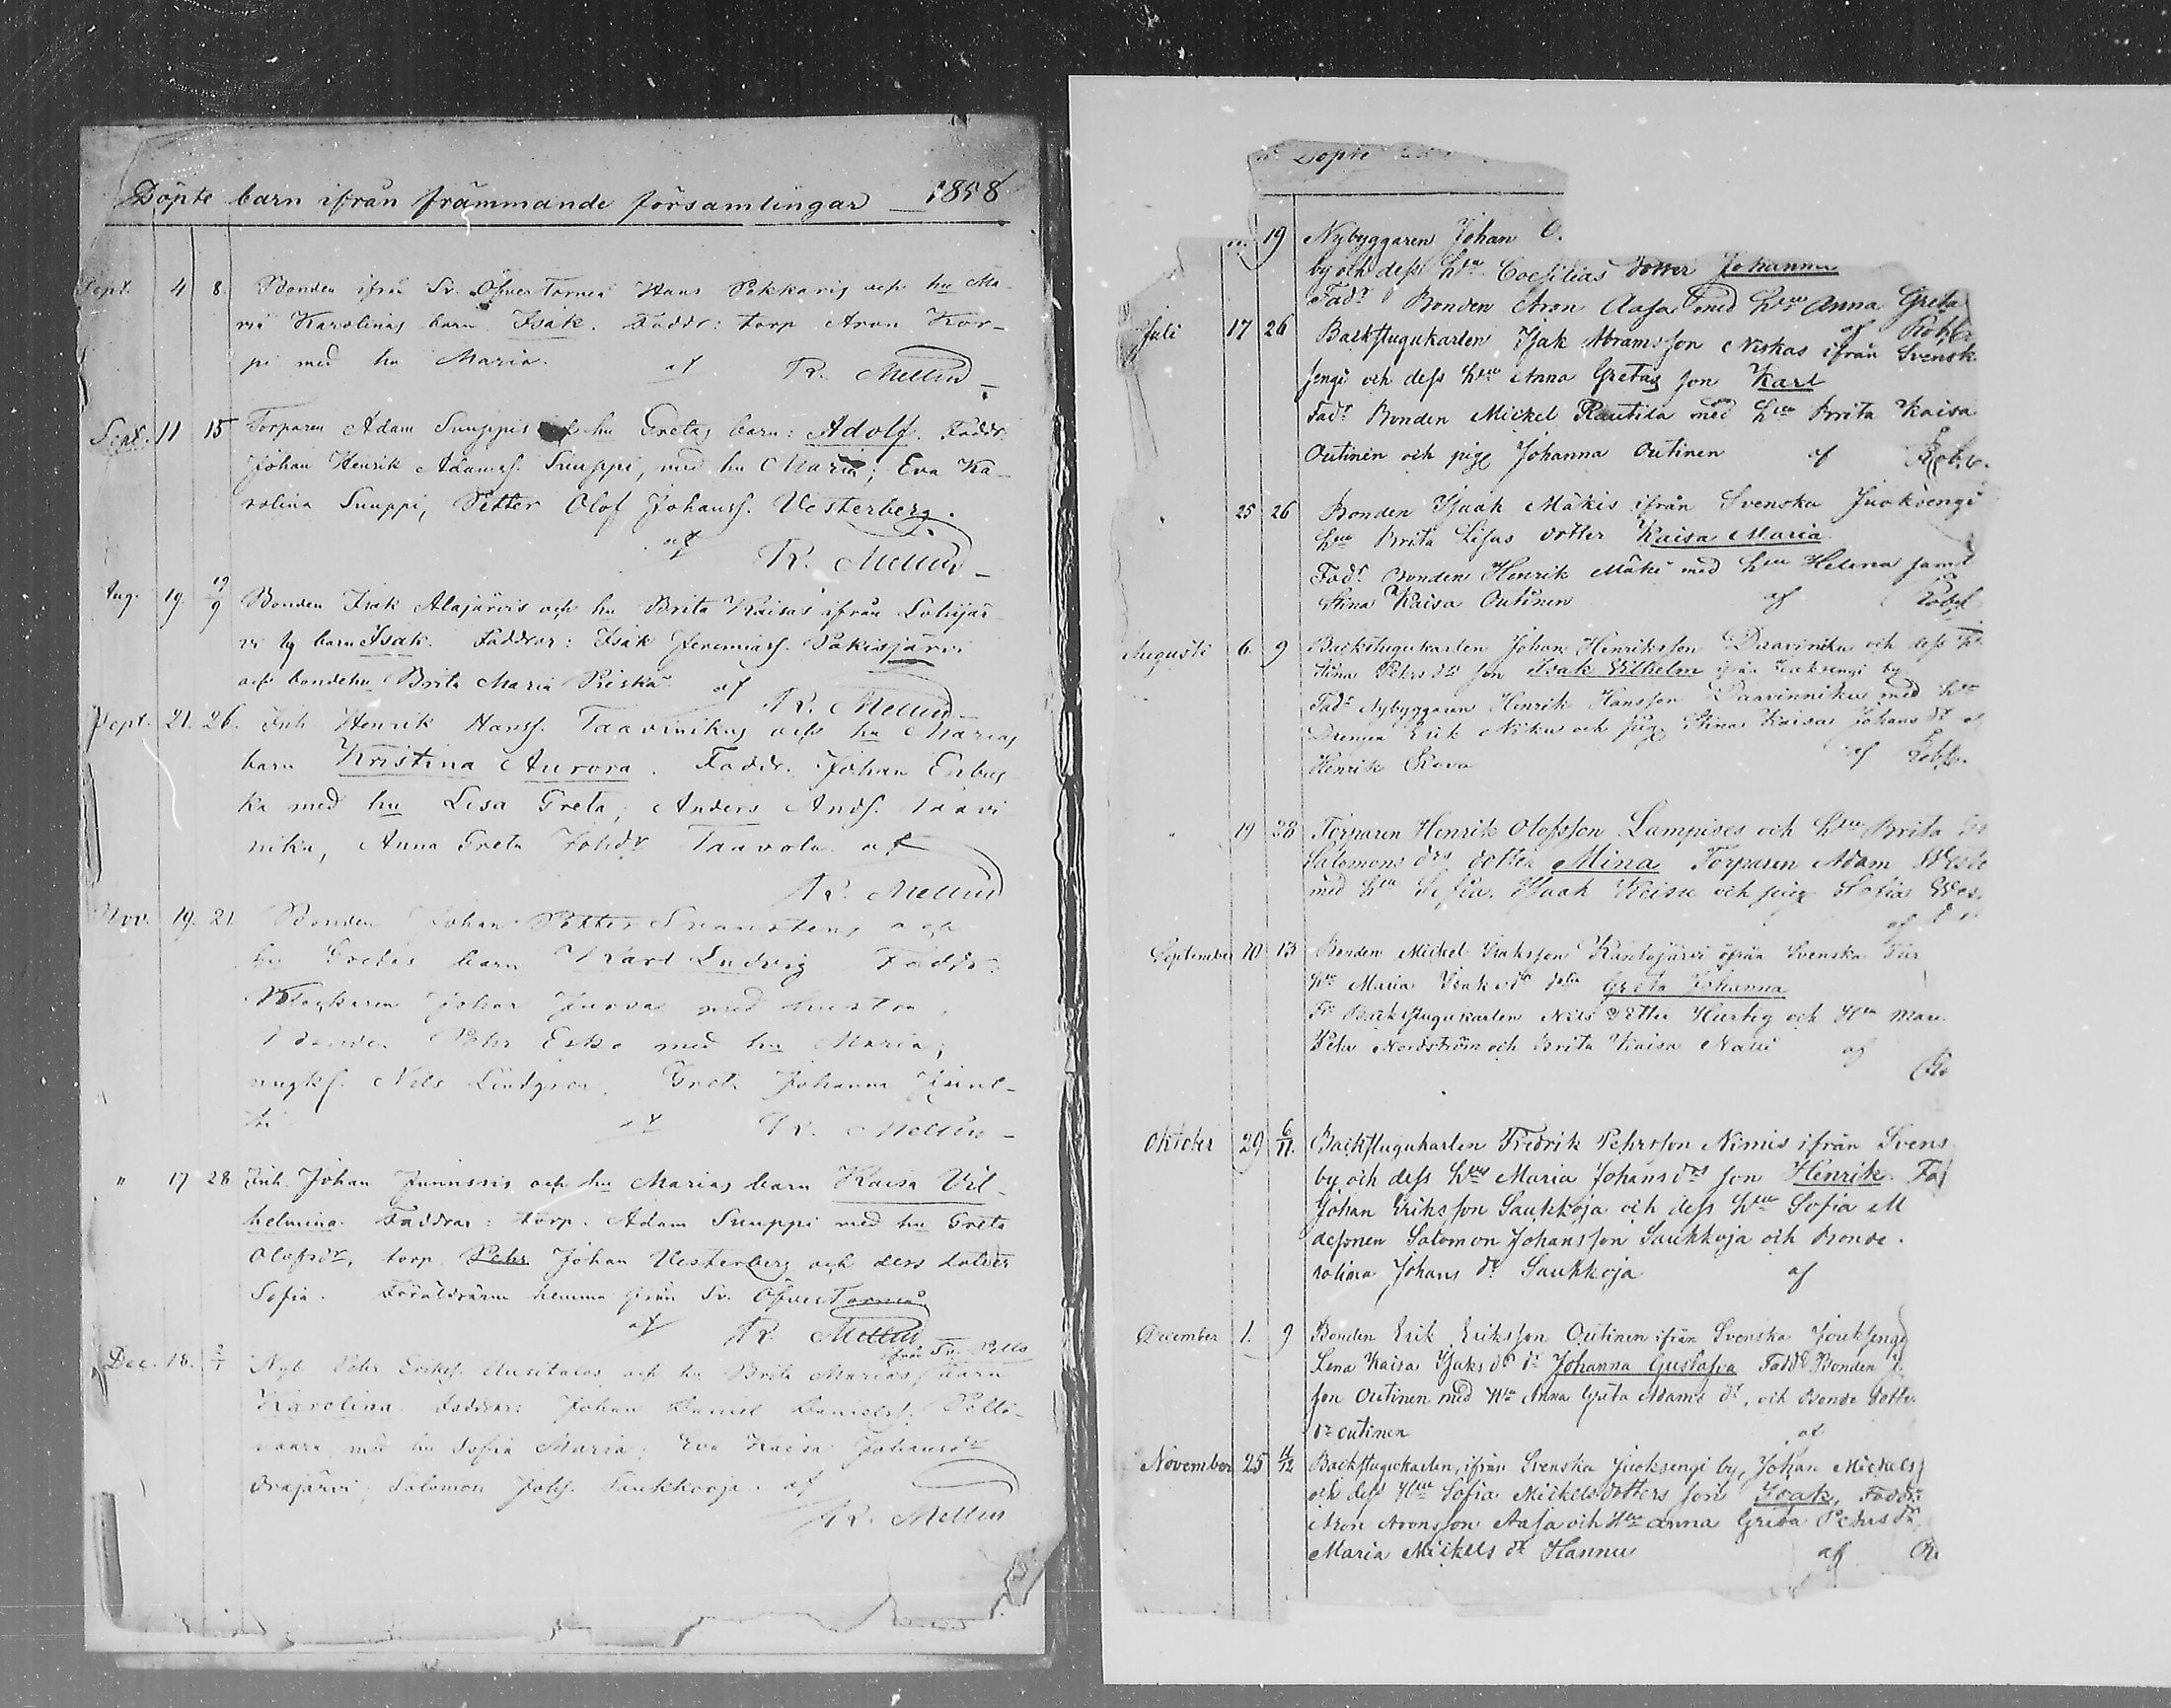 Döpte barn ifrån främmande församlingar 1858
Sept. 4 8. Bonden ifrån Sv. Öfver Torneå Hans Pekkaris och hu Ma-
ria Karolinas barn Isak. Faddr: torp Aron Kor-
pi med hu Maria. af R. Mellin
Sept. 11 15 Torparen Adam Suuppis och hu Gretas barn: Adolf. Faddr.
Johan Henrik Adamss. Suuppi, med hu Maria; Eva Ka-
rolina Suuppi, Petter Olof Johanss. Vesterberg.
af R. Mellin
Aug. 19. 19/9 Bonden Isak Alajärvis och hu Brita Kaisas ifrån Lohijär-
vi by barn Isak. Faddrar: Isak Jeremiass. Pakisjärvi
och bondehu Brita Maria Priska af R. Mellin
Sept. 21. 26. Inh. Henrik Hanss. Taavinikus och hu Marias
barn Kristina Aurora. Faddr. Johan Erbus
ka med hu Lisa Greta, Anders Ands. Taavi
niku, Anna Greta Johdr Taavola af
R. Mellin
Nov. 19. 21 Bonden Johan Petter och
hu Gretas barn Karl Ludvig Faddr:
Johan Juova med hustru
Bonden Pehr Esko med hu Maria;
Nils Lindgren, Greta Johanna
af R. Mellin
" 17 28 Inh. Johan Junussis och hu Marias barn Kaisa Vil-
helmina. Faddrar: torp. Adam Suuppi med hu Greta
Olofsdr, torp. Pehr Johan Vesterberg och dess dotter
Sofia. Föräldrarne hemma ifrån Sv. Öfver Torneå
af R. Mellin
ifrån Sv. Pello
Dec. 18. 2/1 Nyb. Pehr Erikss. Uusitalos och hu Brita Marias barn
Karolina. Faddrar: Johan Daniel Danielss. Pello-
vaara med hu Sofia Maria; Eva Kaisa Johansdr
Orajärvi; Salomon Johs. Saukkoja. af
R. Mellin
Döpte
19 Nybyggaren Johan O.
by och dess hru Coesilias dotter Johanna
Fadr Bonden Aron Aasa med hru Anna Greta
af
Juli 17 26 Backstugukarlen Isak Abramsson Niskas ifrån Svensk
sengi och dess hru Anna Gretas son Karl
Fadr Bonden Mickel Rautila med hru Brita Kaisa
Outinen och pig Johanna Outinen af
" 25 26 Bonden Isaak Mäkis ifrån Svenska Juoksengi
hru Brita Lisas dotter Kaisa Maria
Fadr Bonden Henrik Mäki med hru Helena samt
Stina Kaisa Outinen af
Augusti 6. 9 Backstugukarlen Johan Henriksson Daaviniku och dess h
Stina Pehrs dr son Isak Vilhelm ifrån Juoksengi by
Fadr Nybyggaren Henrik Hansson Daavinniku med hru
Drengen Erik Niku och pig. Stina Kaisa Johans dr
Henrik af
" 19 28 Torparen Henrik Olofsson Lampises och hru Brita
Salomons drs dotter Mina Torparen Adam
med hru Sofia, Isaak och pig Sofia
af
September 10 13 Bonden Mickel Isaksson Kantojärvi ifrån Svenska
hru Maria Isaks dr dotter Greta Johanna
Fr Backstugukarlen Nils Petter Hurtig och Hru Mar
Pehr Nordström och Brita Kaisa af
Oktober 29 6/11. Backstugukarlen Fredrik Pehrsson Nimis ifrån Svens
by och dess hrus Maria Johansdrs son Henrik. Fa
Johan Eriksson Saukkoja och dess hru Sofia M
desonen Salomon Johansson Saukkoja och Bonde
rolina Johans dr Saukkoja af
December 1. 9 Bonden Erik Eriksson Outinen ifrån Svenska Jouksengi
Lena Kaisa Isaks dr dr Johanna Gustafva Faddr Bonden
son Outinen med Hru Anna Greta Adams dr, och Bonde dotter
dr Outinen af
November 25 11/12 Backstugukarlen, ifrån Svenska Juoksengi by, Johan Mickels
och dess Hru Sofia Mickelsdotters son Isak, Faddr:
Aron Aronsson Aasa och Hru Anna Greta Pehrs dr,
Maria Mickels dr Hannu af